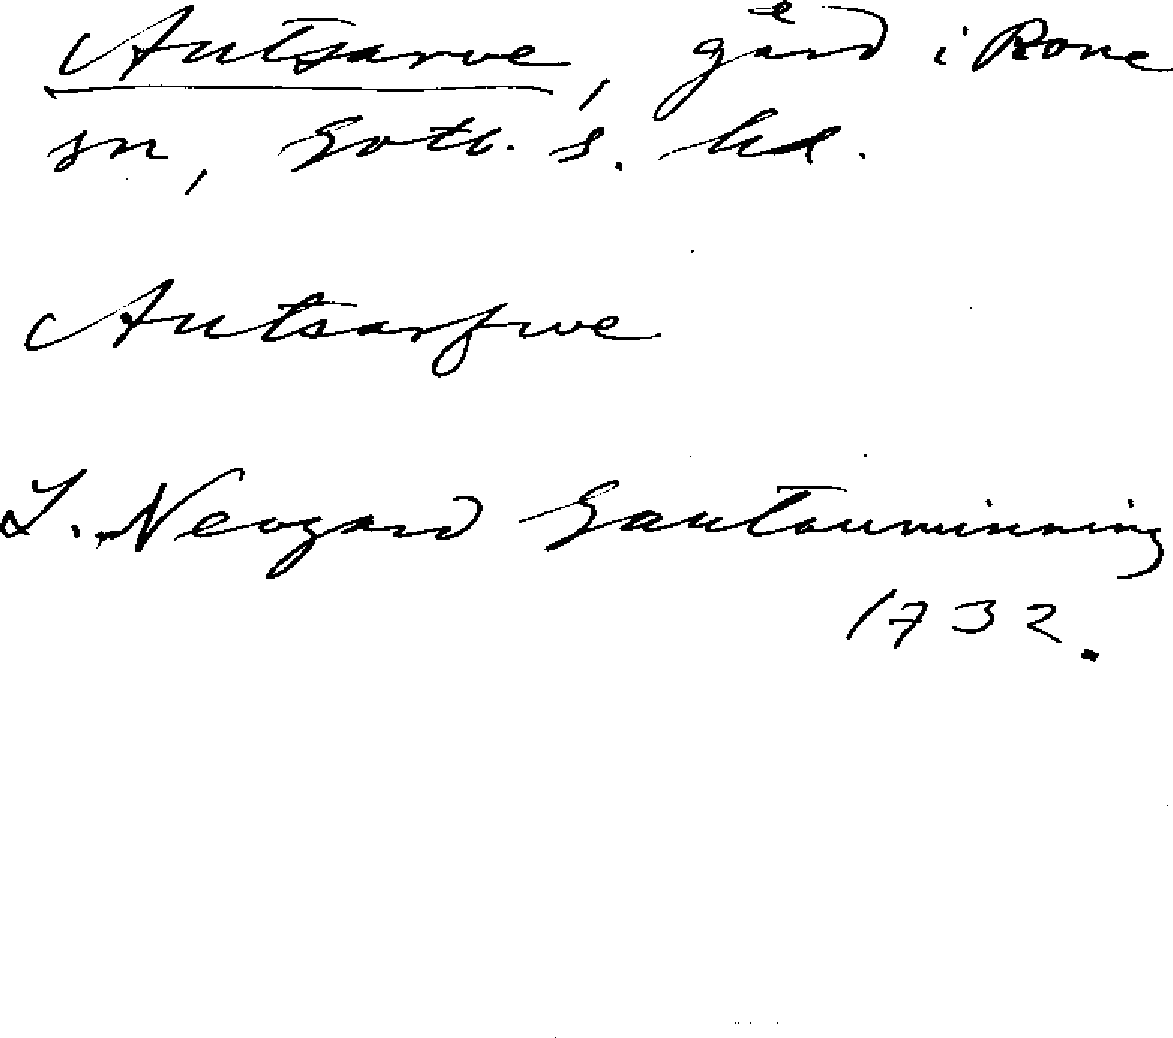 Autsarve, gård i Rone
sn, Gotl. s. hd.
Autsarfwe
L. Neogard Gautauminning
1732.